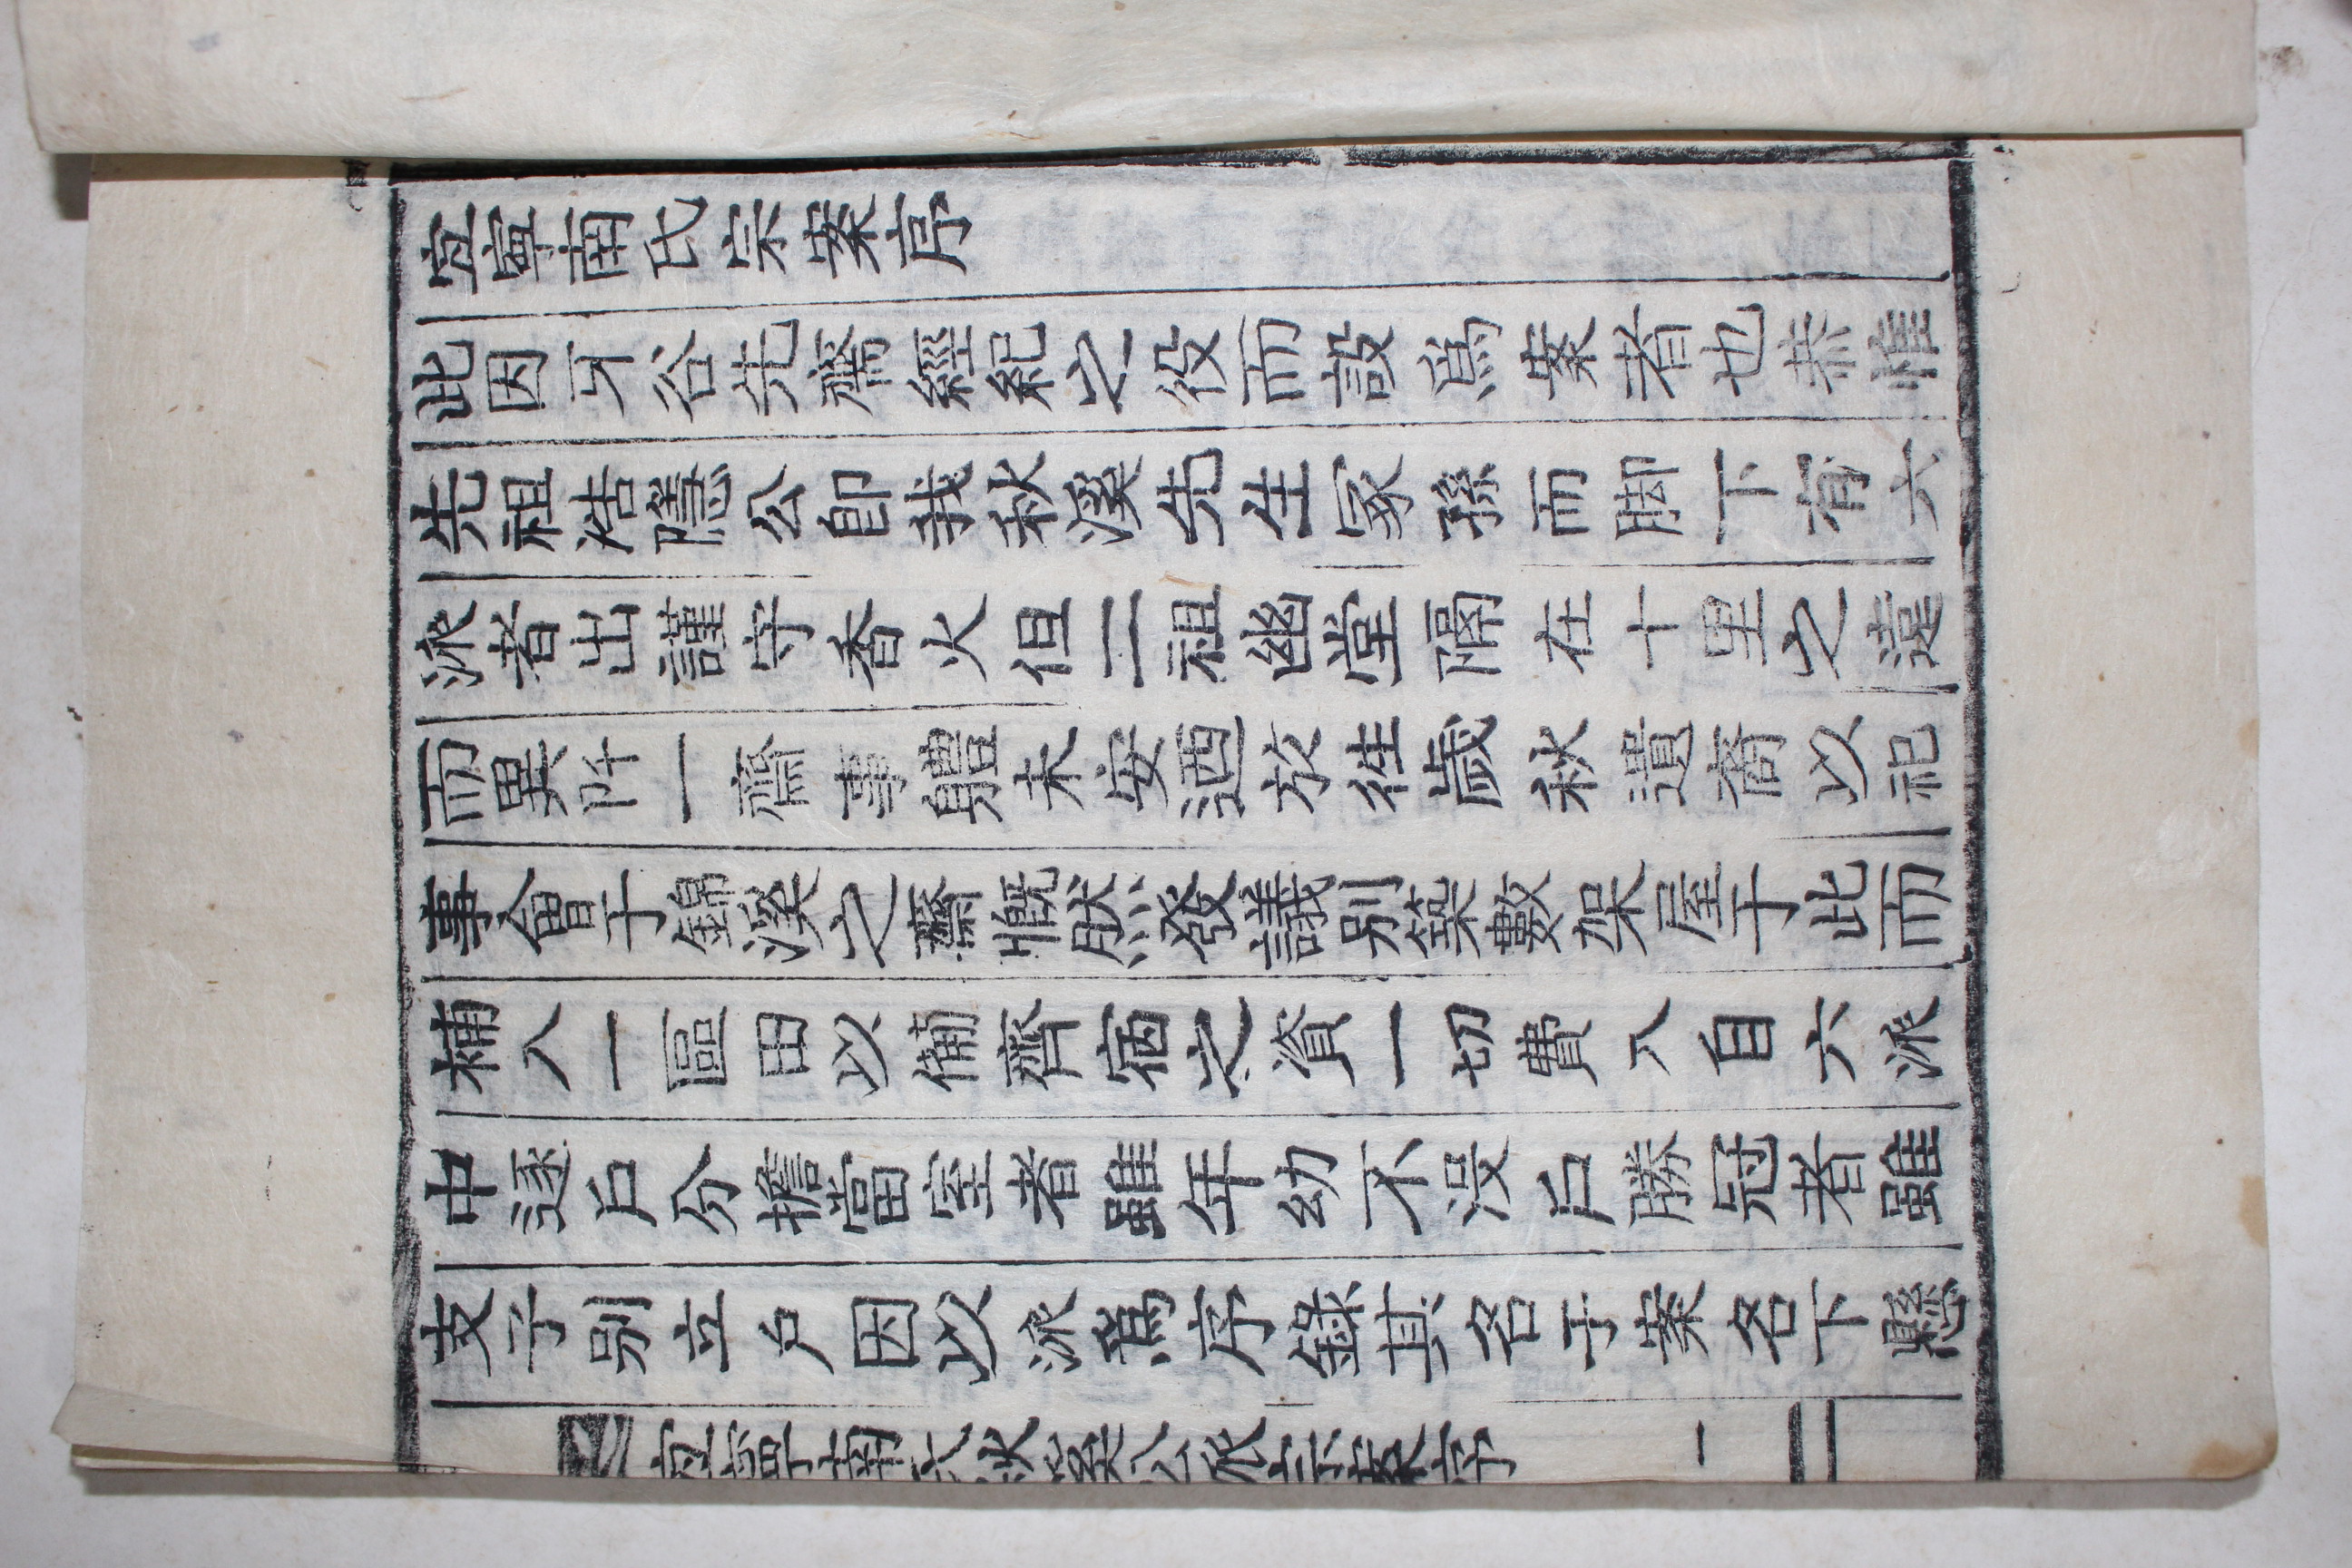 宜寧南氏宗案序
此因牙谷先齋經紀之役而設爲案者也恭惟
先祖浩隱公卽我秋溪先生冢孫而脚下有六
派者出謹守香火但二祖幽堂隔在十里之遠
而異阡一齋事軆未安迺於徃歲秋遺裔以祀
事會于錦溪之齋慨然發議別築數架屋于此而
補入一區田以備齊宿之資一切費入自六派
中逐戶分擔當室者雖年幼不沒戶勝冠者雖
支子別立戶因以派爲序錄其名于案名下懸
宜寧南氏秋溪公派宗案序 一